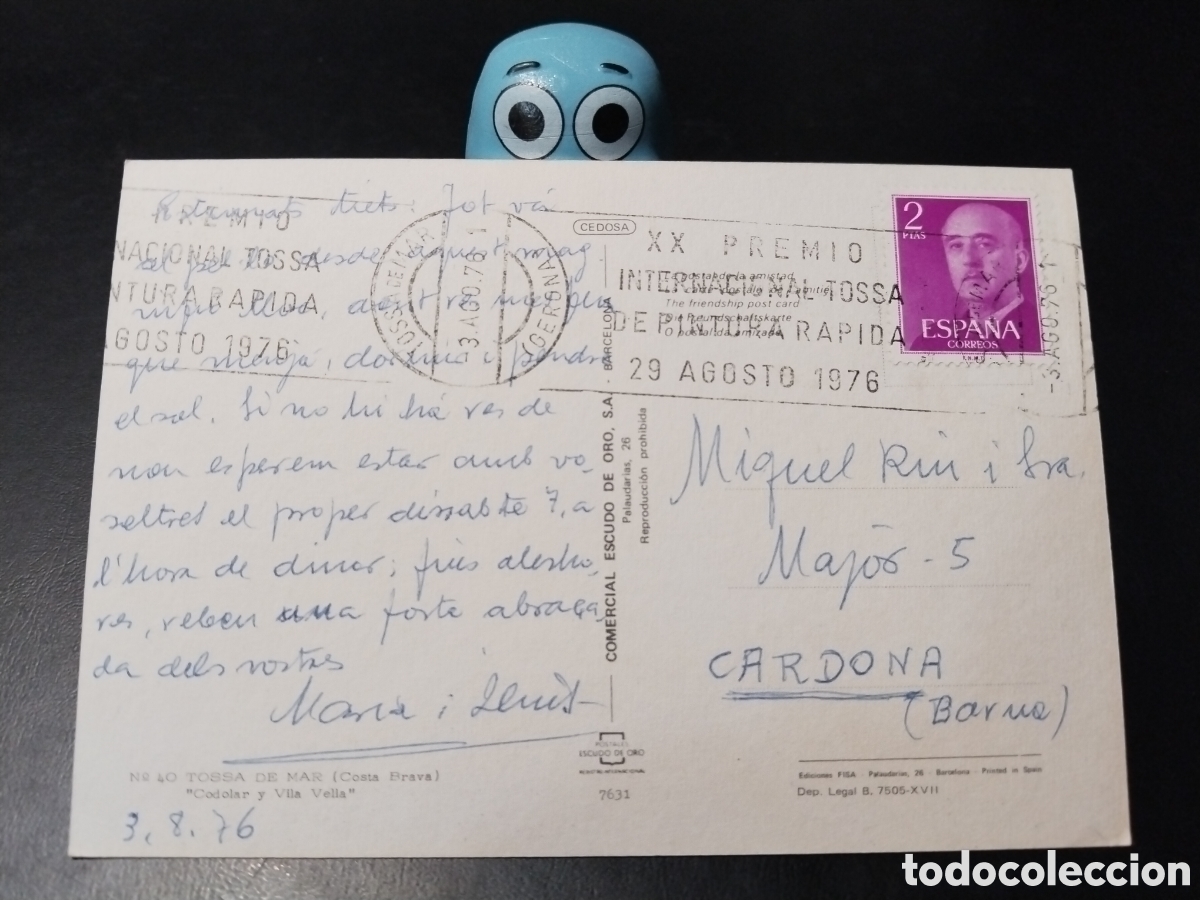 Estimats tiets: Tot va
desde aquest mag
nific lloc,
que menjá, dormir i pendre
el sol. Si no hi há res de
nou esperem estar amb vo-
saltres el proper dissabte 7, a
l'hora de dinar; fins alesho-
res, reben una forta abraça
da dels vostres
Maria i Lluís
Nº 40 TOSSA DE MAR (Costa Brava)
"Codolar y Vila Vella"
3.8.76
PREMIO
NACIONAL TOSSA
NTURA RAPIDA
AGOSTO 1976
TOSSA DE MAR
-3.AGO.76 1
(GERONA)
CEDOSA
XX PREMIO
INTERNACIONAL TOSSA
DE PINTURA RAPIDA
29 AGOSTO 1976
La postal de la amistad
The friendship post card
Die Freundschaftskarte
O postal da amizade
2
PTAS
ESPAÑA
CORREOS
-3.AGO.76 1
COMERCIAL ESCUDO DE ORO, S.A. - BARCELONA
Palaudarias, 26
Reproducción prohibida
Miquel Riu i Sra.
Majór - 5
CARDONA
(Barna)
POSTALES
ESCUDO DE ORO
7631
Ediciones FISA - Palaudarias, 26 - Barcelona - Printed in Spain
Dep. Legal B. 7505-XVII
todocoleccion